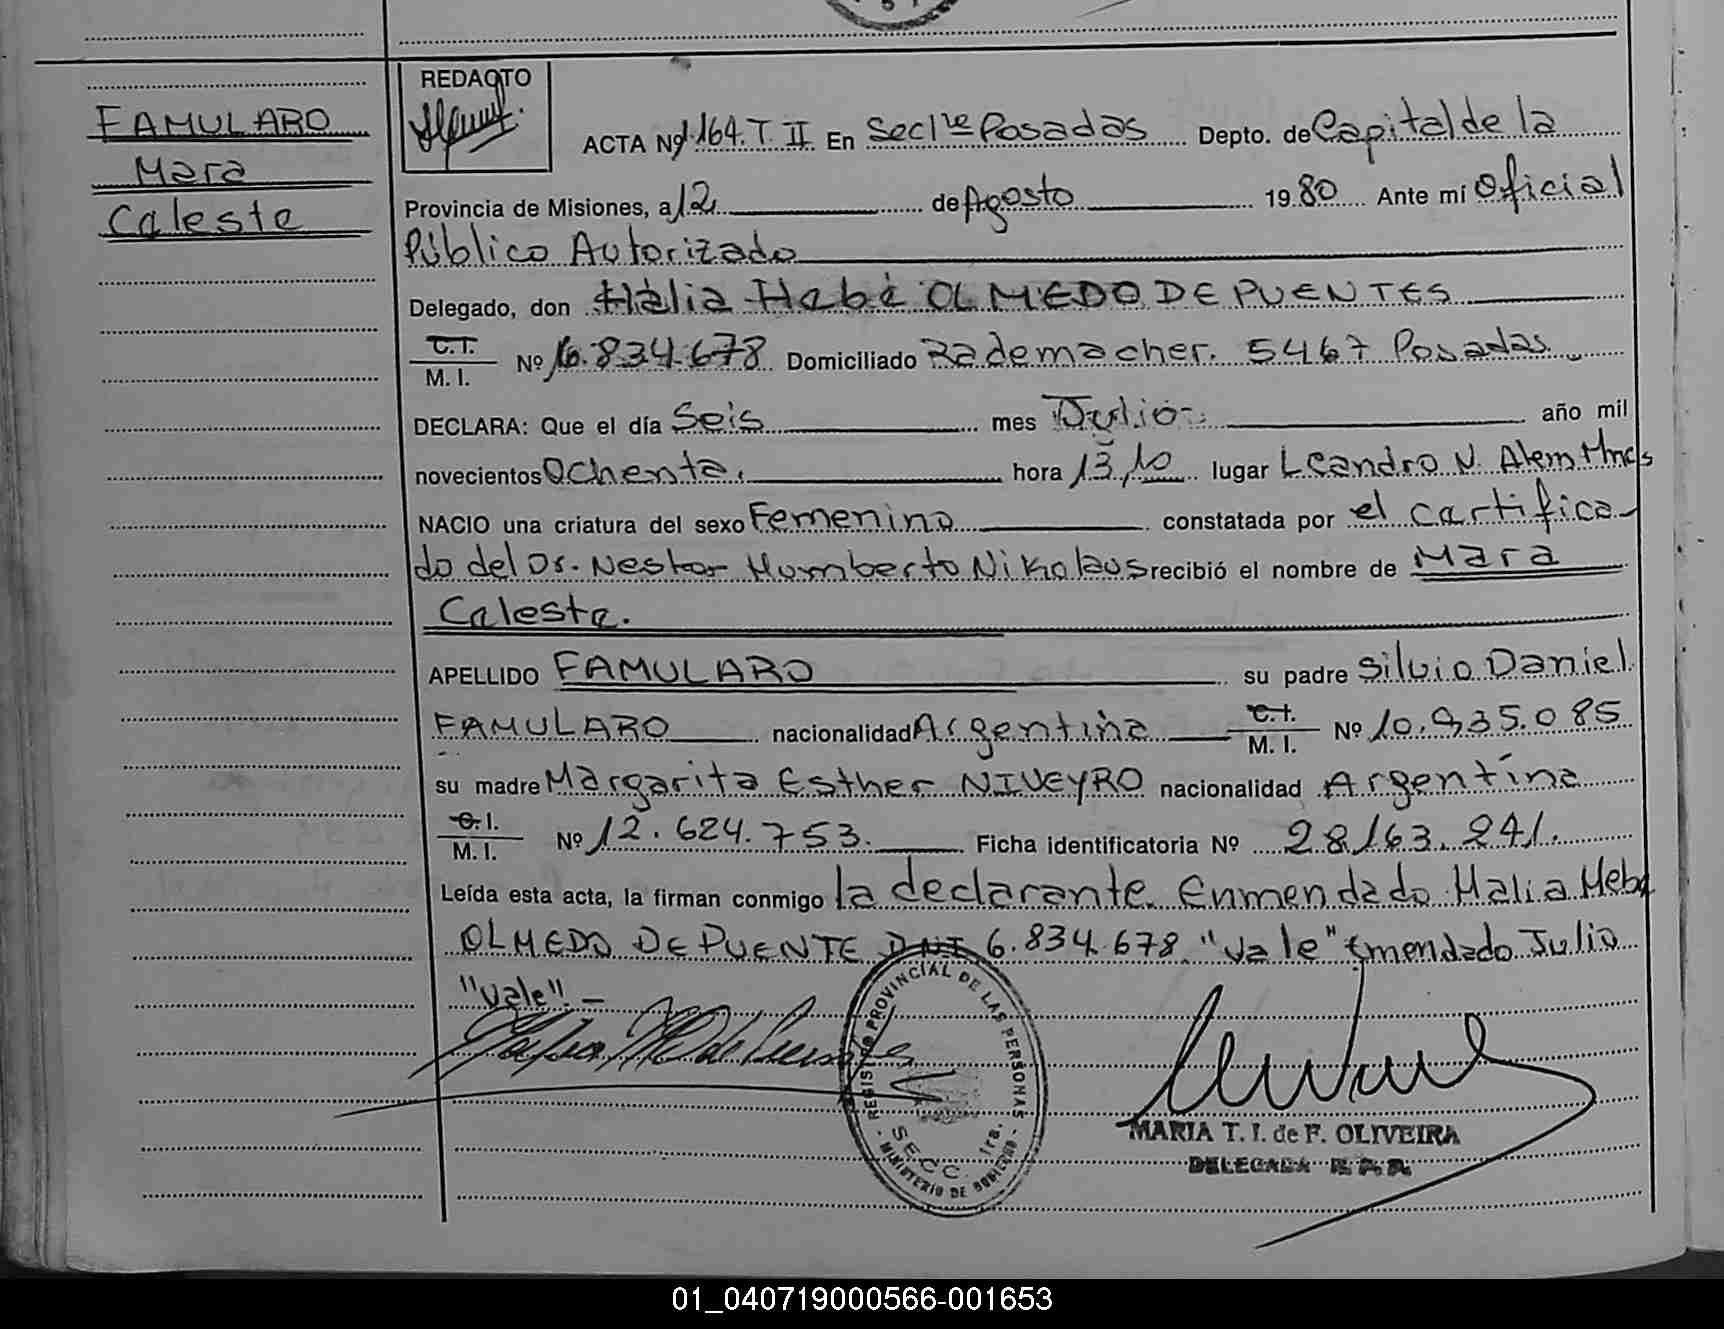 FAMULARO
Mara
Celeste
REDACTO
ACTA Nº 164. T. II En Secc 1re Posadas Depto. de Capital de la
Provincia de Misiones, a 12 de Agosto 1980 Ante mí Oficial
Público Autorizado
Delegado, don Halia Hebé OLMEDO DE PUENTES
C.I. / M. I. Nº 6.834.678 Domiciliado Rademacher. 5467 Posadas
DECLARA: Que el día Seis mes Julio año mil
novecientos Ochenta. hora 13,10 lugar Leandro N. Alem Mnes
NACIO una criatura del sexo Femenino constatada por el certifica
do del Dr. Nestor Humberto Nikolaus recibió el nombre de Mara
Celeste.
APELLIDO FAMULARO su padre Silvio Daniel
FAMULARO nacionalidad Argentina C.I. / M. I. Nº 10.935.085
su madre Margarita Esther NIVEYRO nacionalidad Argentina
C.I. / M. I. Nº 12.624.753. Ficha identificatoria Nº 28.163.241.
Leída esta acta, la firman conmigo la declarante. Enmendado Halia Hebe
OLMEDO DE PUENTE DNI 6.834.678 "Vale" Enmendado Julio
"Vale". -
REGISTRO PROVINCIAL DE LAS PERSONAS
SECC. 1ra.
- MINISTERIO DE GOBIERNO -
MARIA T. I. de F. OLIVEIRA
DELEGADA R. P. P.
01_040719000566-001653